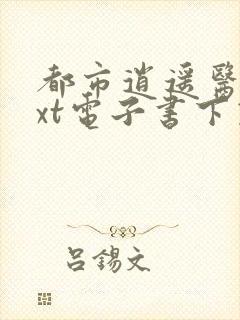 都市逍遥醫
xt電子書下
吕錫文